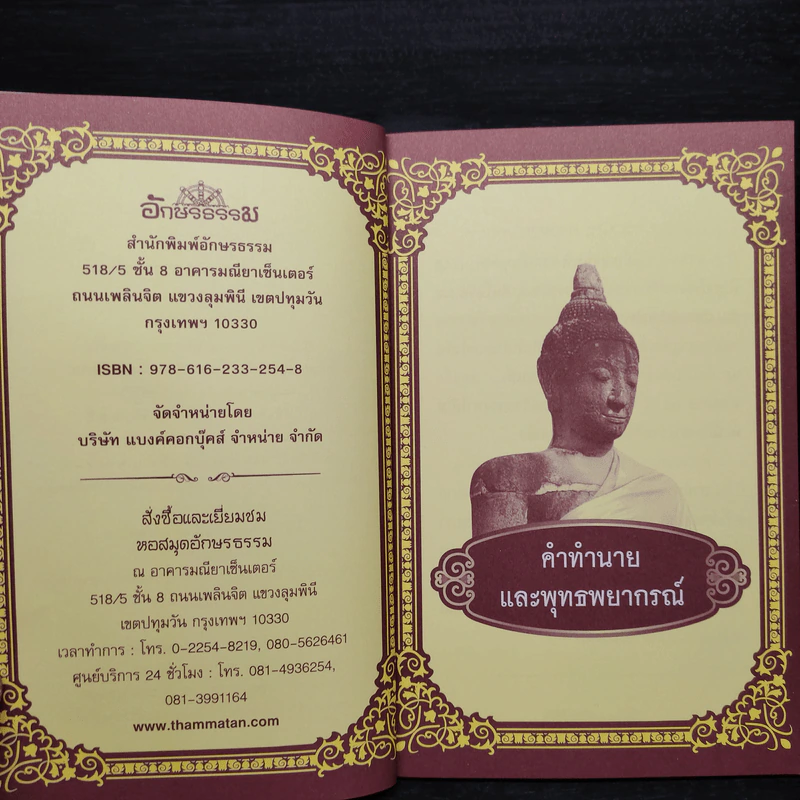 อักษรธรรม
สำนักพิมพ์อักษรธรรม
518/5 ชั้น 8 อาคารมณียาเซ็นเตอร์
ถนนเพลินจิต แขวงลุมพินี เขตปทุมวัน
กรุงเทพฯ 10330
ISBN : 978-616-233-254-8
จัดจำหน่ายโดย
บริษัท แบงค์คอกบุ๊คส์ จำหน่าย จำกัด
สั่งซื้อและเยี่ยมชม
หอสมุดอักษรธรรม
ณ อาคารมณียาเซ็นเตอร์
518/5 ชั้น 8 ถนนเพลินจิต แขวงลุมพินี
เขตปทุมวัน กรุงเทพฯ 10330
เวลาทำการ : โทร. 0-2254-8219, 080-5626461
ศูนย์บริการ 24 ชั่วโมง : โทร. 081-4936254,
081-3991164
www.thammatan.com
คำทำนาย
และพุทธพยากรณ์